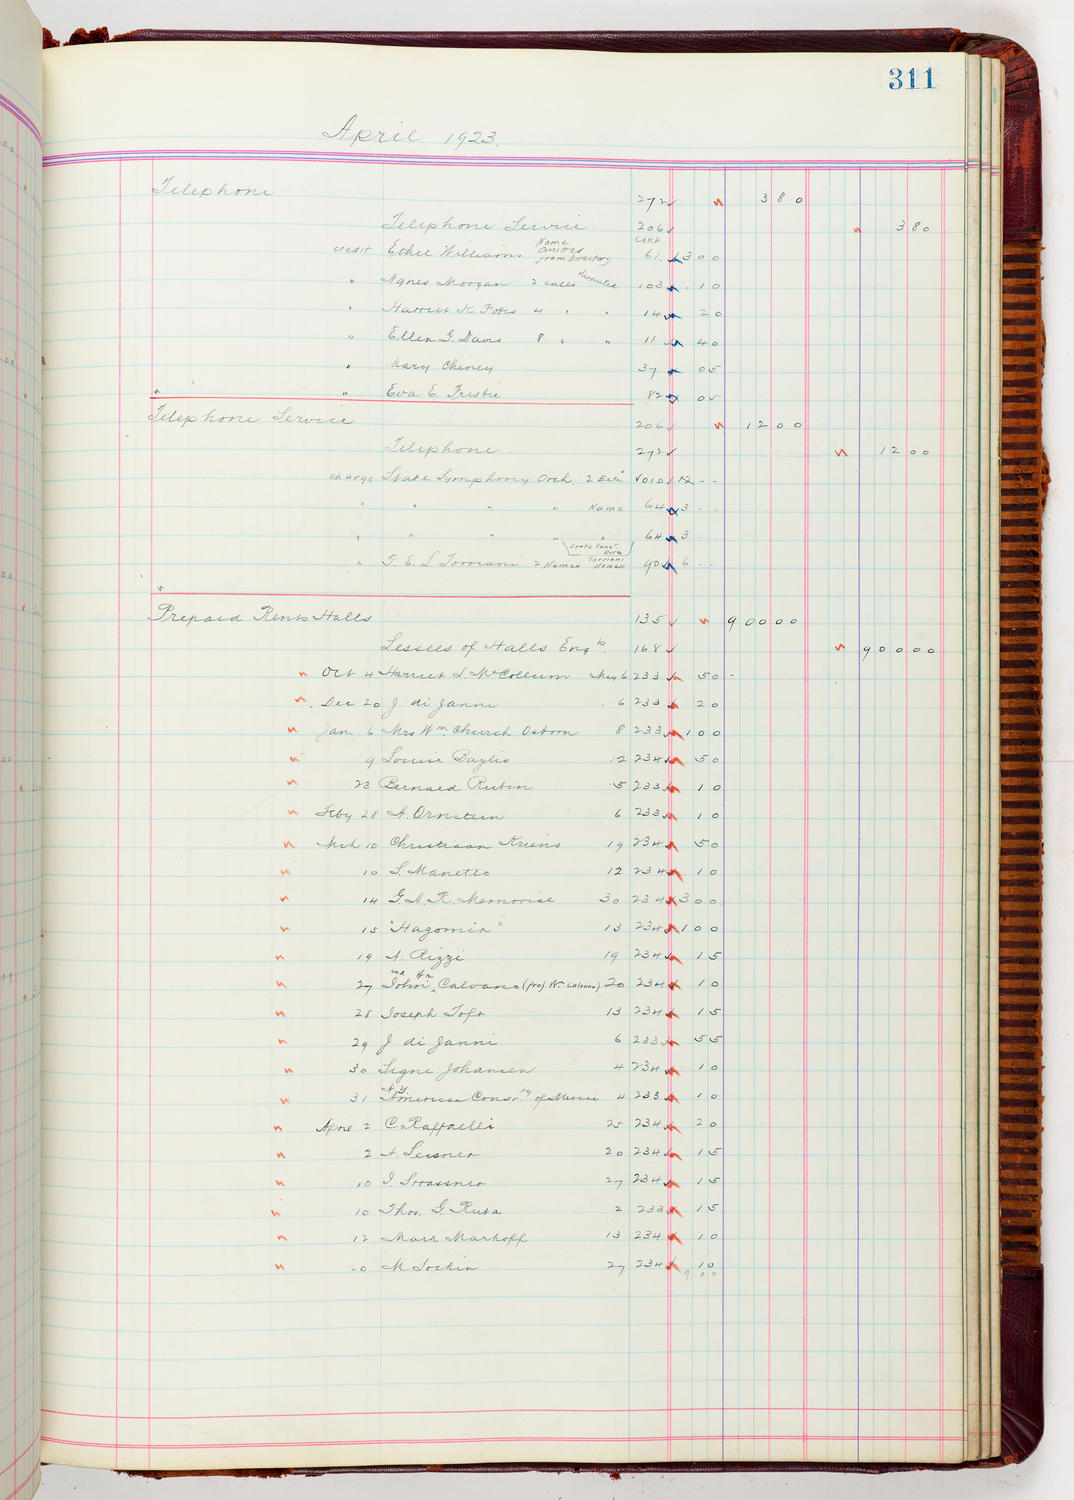 311
April 1923.
Telephone 272 380
Telephone Service 206 380
credit Ethel Williams Name Omitted from Directory CARD 61. 300
" Agnes Morgan 2 calls disputed 103 10
" Harriet K. Fobes 4 " " 14 20
" Ellen G. Davis 8 " " 11 40
" Mary Cheney 37 05
" " Eva E. Frisbie 82 05
Telephone Service 206 1200
Telephone 272 1200
charge State Symphony Orch. 2 VOID 12 --
" " " " Name 64 3 --
" " " " " 64 3
" F. E. L. Torriani 2 Names Torriani 90 6 --
Prepaid Rents Halls 135 90000
Lessees of Halls Eng 168 90000
Oct 4 Harriet S. McCollum May 6 233 50 -
Dec 20 J. di Janni 6 233 20
Jan. 6 Mrs Wm. Church Osborn 8 233 100
9 Louise Baylis 12 234 50
23 Bernard Rubin 5 233 10
Feby 28 A. Ornstein 6 233 10
Mch 10 Christiaan Kriens 19 234 50
10 S. Manetto 12 234 10
14 G.A.R. Memorial 30 234 300
15 "Hagomir" 13 234 100
19 A. Rizzi 19 234 15
27 John and Wm Calvano (Prof Wm Calvano) 20 234 10
28 Joseph 13 234 15
29 J di Janni 6 233 55
30 Signe Johansen 4 234 10
31 N.Y. American Conservty of Music 4 233 10
April 2 C Raffaelli 25 234 20
2 A. Lessner 20 234 15
10 I. Strassner 27 234 15
10 Thos. G. Ruta 2 233 15
12 Mark Markoff 13 234 10
M Sockin 27 234 10
900